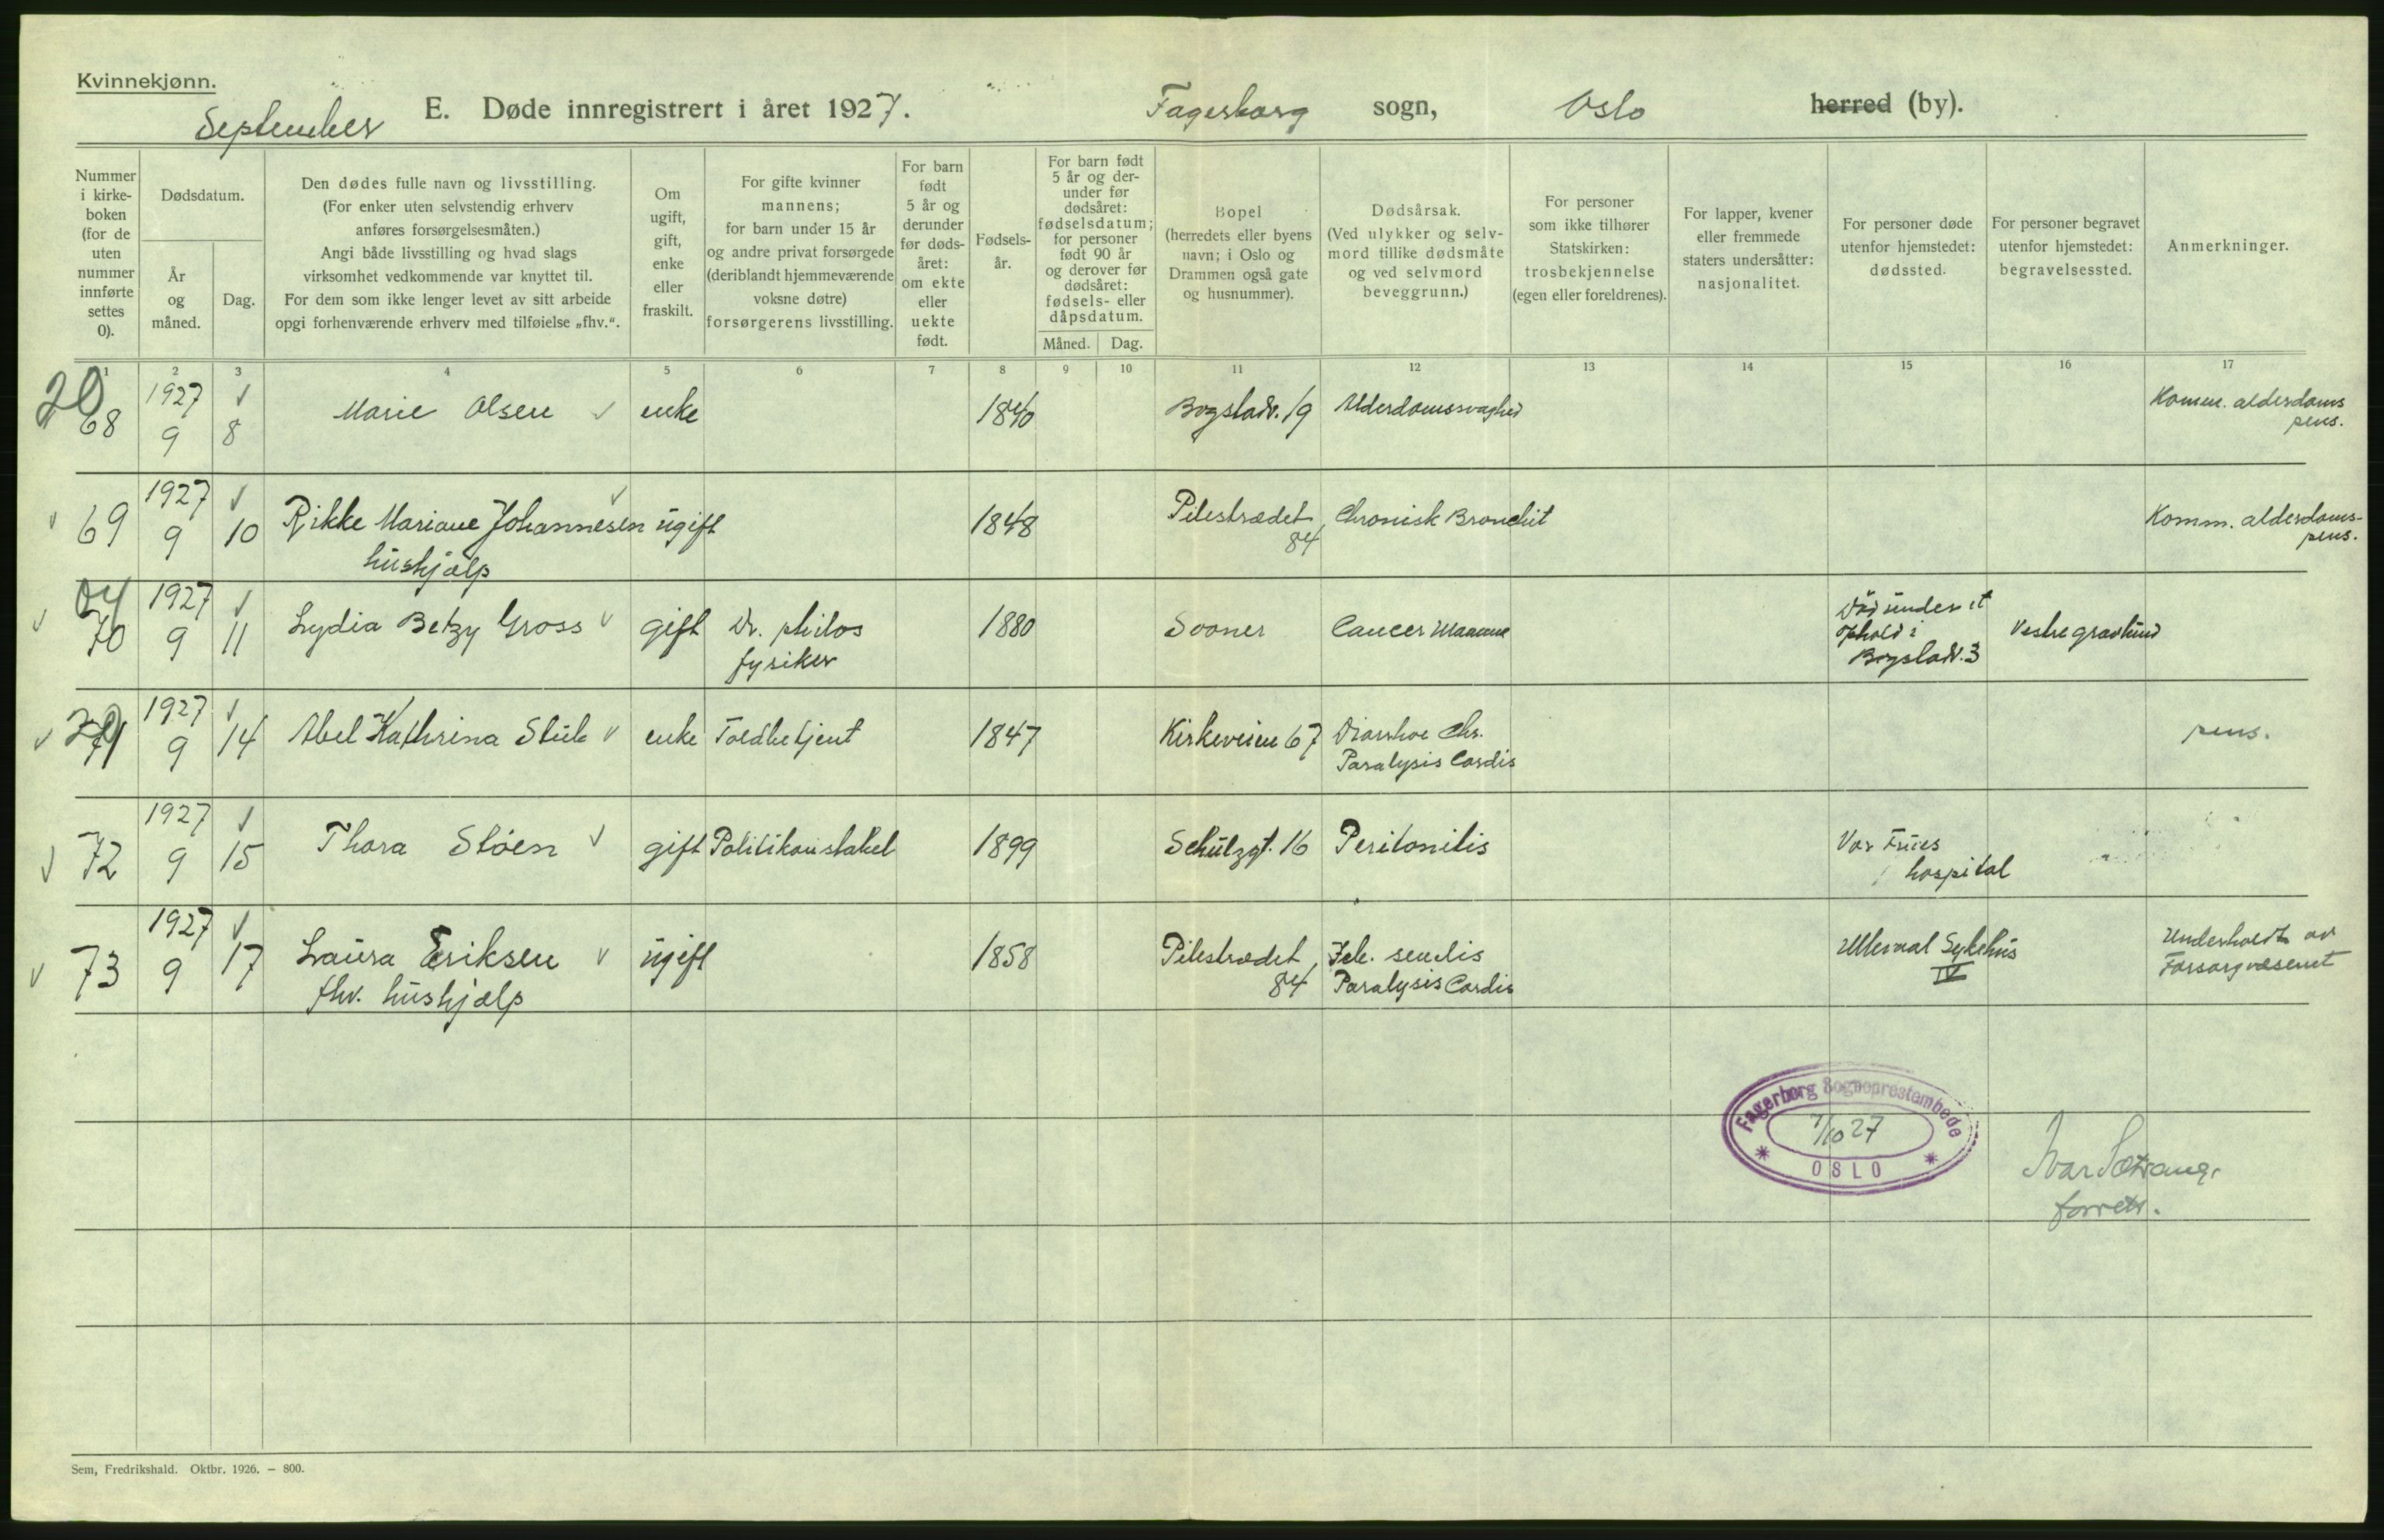 Kvinnekjønn.
September E. Døde innregistrert i året 1927. Fagerborg sogn, Oslo herred (by).
Nummer
i kirke-
boken
(for de
uten
nummer
innførte
settes
0).
Dødsdatum.
År
og
måned.
Dag.
Den dødes fulle navn og livsstilling.
(For enker uten selvstendig erhverv
anføres forsørgelsesmåten.)
Angi både livsstilling og hvad slags
virksomhet vedkommende var knyttet til.
For dem som ikke lenger levet av sitt arbeide
opgi forhenværende erhverv med tilføielse „fhv.“.
Om
ugift,
gift,
enke
eller
fraskilt.
For gifte kvinner
mannens;
for barn under 15 år
og andre privat forsørgede
(deriblandt hjemmeværende
voksne døtre)
forsørgerens livsstilling.
For barn
født
5 år og
derunder
før døds-
året:
om ekte
eller
uekte
født.
Fødsels-
år.
For barn født
5 år og der-
under før
dødsåret:
fødselsdatum;
for personer
født 90 år
og derover før
dødsåret:
fødsels- eller
dåpsdatum.
Måned. Dag.
Bopel
(herredets eller byens
navn; i Oslo og
Drammen også gate
og husnummer).
Dødsårsak.
(Ved ulykker og selv-
mord tillike dødsmåte
og ved selvmord
beveggrunn.)
For personer
som ikke tilhører
Statskirken:
trosbekjennelse
(egen eller foreldrenes).
For lapper, kvener
eller fremmede
staters undersåtter:
nasjonalitet.
For personer døde
utenfor hjemstedet:
dødssted.
For personer begravet
utenfor hjemstedet:
begravelsessted.
Anmerkninger.
1 2 3 4 5 6 7 8 9 10 11 12 13 14 15 16 17
20
68 1927 9 8 Marie Olsen enke 1840 Bogstadv. 19 Alderdomssvaghed Komm. alderdoms
pens.
69 1927 9 10 Rikke Mariane Johannesen ugift 1848 Pilestrædet 84 Chronisk Bronchit Komm. alderdoms-
pens.
hushjælp
04
70 1927 9 11 Lydia Betzy Gross gift Dr. philos
fysiker 1880 Sooner Cancer Mammae Død under et
ophold i
Bogstadv. 3 Vestre gravlund
71 1927 9 14 Abel Kathrina Stub enke Toldbetjent 1847 Kirkeveien 67 Diarrhoe Chr.
Paralysis Cordis pens.
72 1927 9 15 Thora Støen gift Politikonstabel 1899 Schulzgt. 16 Peritonitis Vor Frues
hospital
73 1927 9 17 Laura Eriksen ugift 1858 Pilestrædet 84 senilis
Paralysis Cordis Ulleval Sykehus
IV Underholdt av
Forsorgvæsenet
fhv. hushjælp
Fagerborg Sogneprestembede
7/10 27
OSLO
Ivar Sætrang.
Sem, Fredrikshald. Oktbr. 1926. – 800.